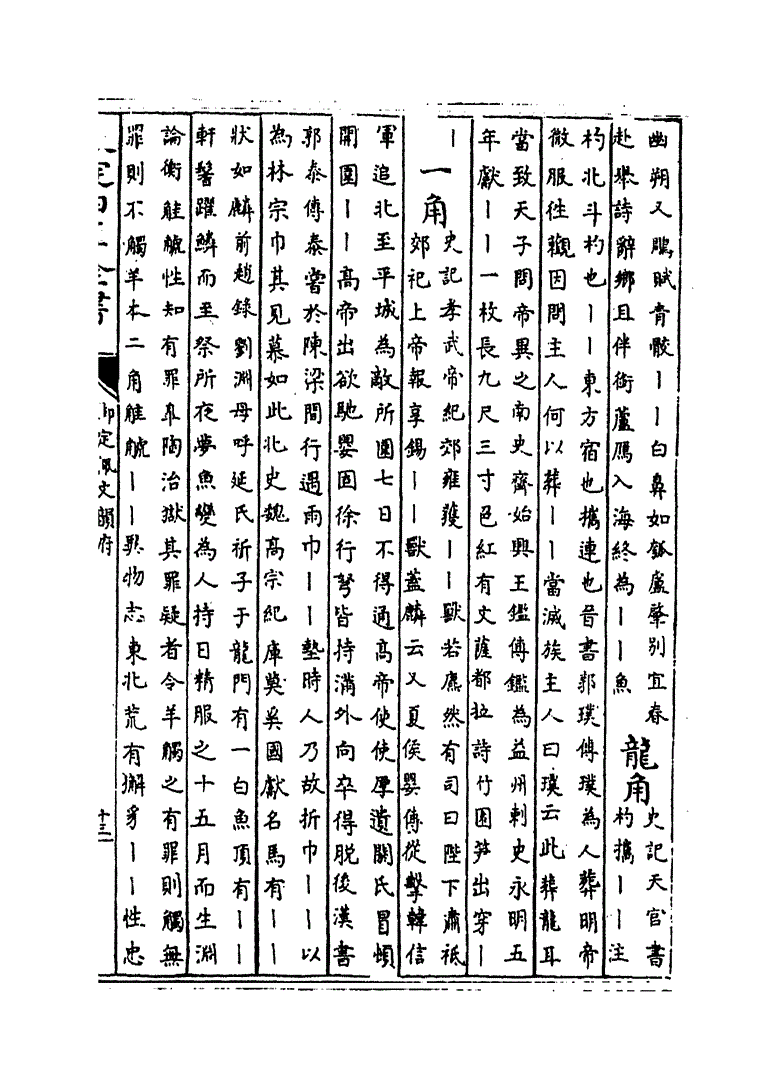 幽朔又鵰賦青骹丨丨白鼻如瓠盧肇別宜春
赴舉詩辭鄉且伴銜蘆鴈入海終為丨丨魚
龍角
史記天官書
杓攜丨丨注
杓北斗杓也丨丨東方宿也攜連也晉書郭璞傳璞為人葬明帝
微服往觀因問主人何以葬丨丨當滅族主人曰璞云此葬龍耳
當致天子問帝異之南史齊始興王鑑傳鑑為益州刺史永明五
年獻丨丨一枚長九尺三寸色紅有文薩都拉詩竹園笋出穿丨
丨
一角
史記孝武帝紀郊雍獲丨丨獸若麃然有司曰陛下肅祗
郊祀上帝報享錫丨丨獸蓋麟云又夏侯嬰傳從擊韓信
軍追北至平城為敵所圍七日不得通高帝使使厚遺閼氏冒頓
開圍丨丨高帝出欲馳嬰固徐行弩皆持滿外向卒得脫後漢書
郭泰傳泰嘗於陳梁間行遇雨巾丨丨墊時人乃故折巾丨丨以
為林宗巾其見慕如此北史魏高宗紀庫莫奚國獻名馬有丨丨
狀如麟前趙錄劉淵母呼延氏祈子于龍門有一白魚頂有丨丨
軒鬐躍鱗而至祭所夜夢魚變為人持日精服之十五月而生淵
論衡觟𧣾性知有罪臯陶治獄其罪疑者令羊觸之有罪則觸無
罪則不觸羊本二角觟𧣾丨丨異物志東北荒有獬豸丨丨性忠
欽定四庫全書
御定佩文韻府
十三